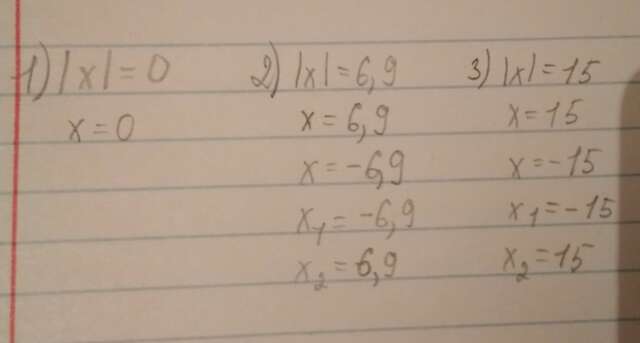 1) |x| = 0
x = 0
2) |x| = 6,9
x = 6,9
x = -6,9
x₁ = -6,9
x₂ = 6,9
3) |x| = 15
x = 15
x = -15
x₁ = -15
x₂ = 15